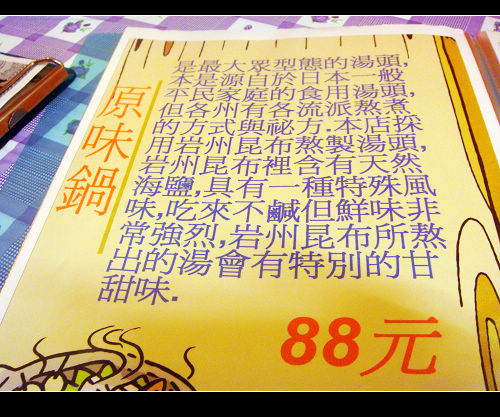 原味鍋
是最大眾型態的湯頭,
本是源自於日本一般
平民家庭的食用湯頭,
但各州有各流派熬煮
的方式與祕方.本店採
用岩州昆布熬製湯頭,
岩州昆布裡含有天然
海鹽,具有一種特殊風
味,吃來不鹹但鮮味非
常強烈,岩州昆布所熬
出的湯會有特別的甘
甜味.
88元